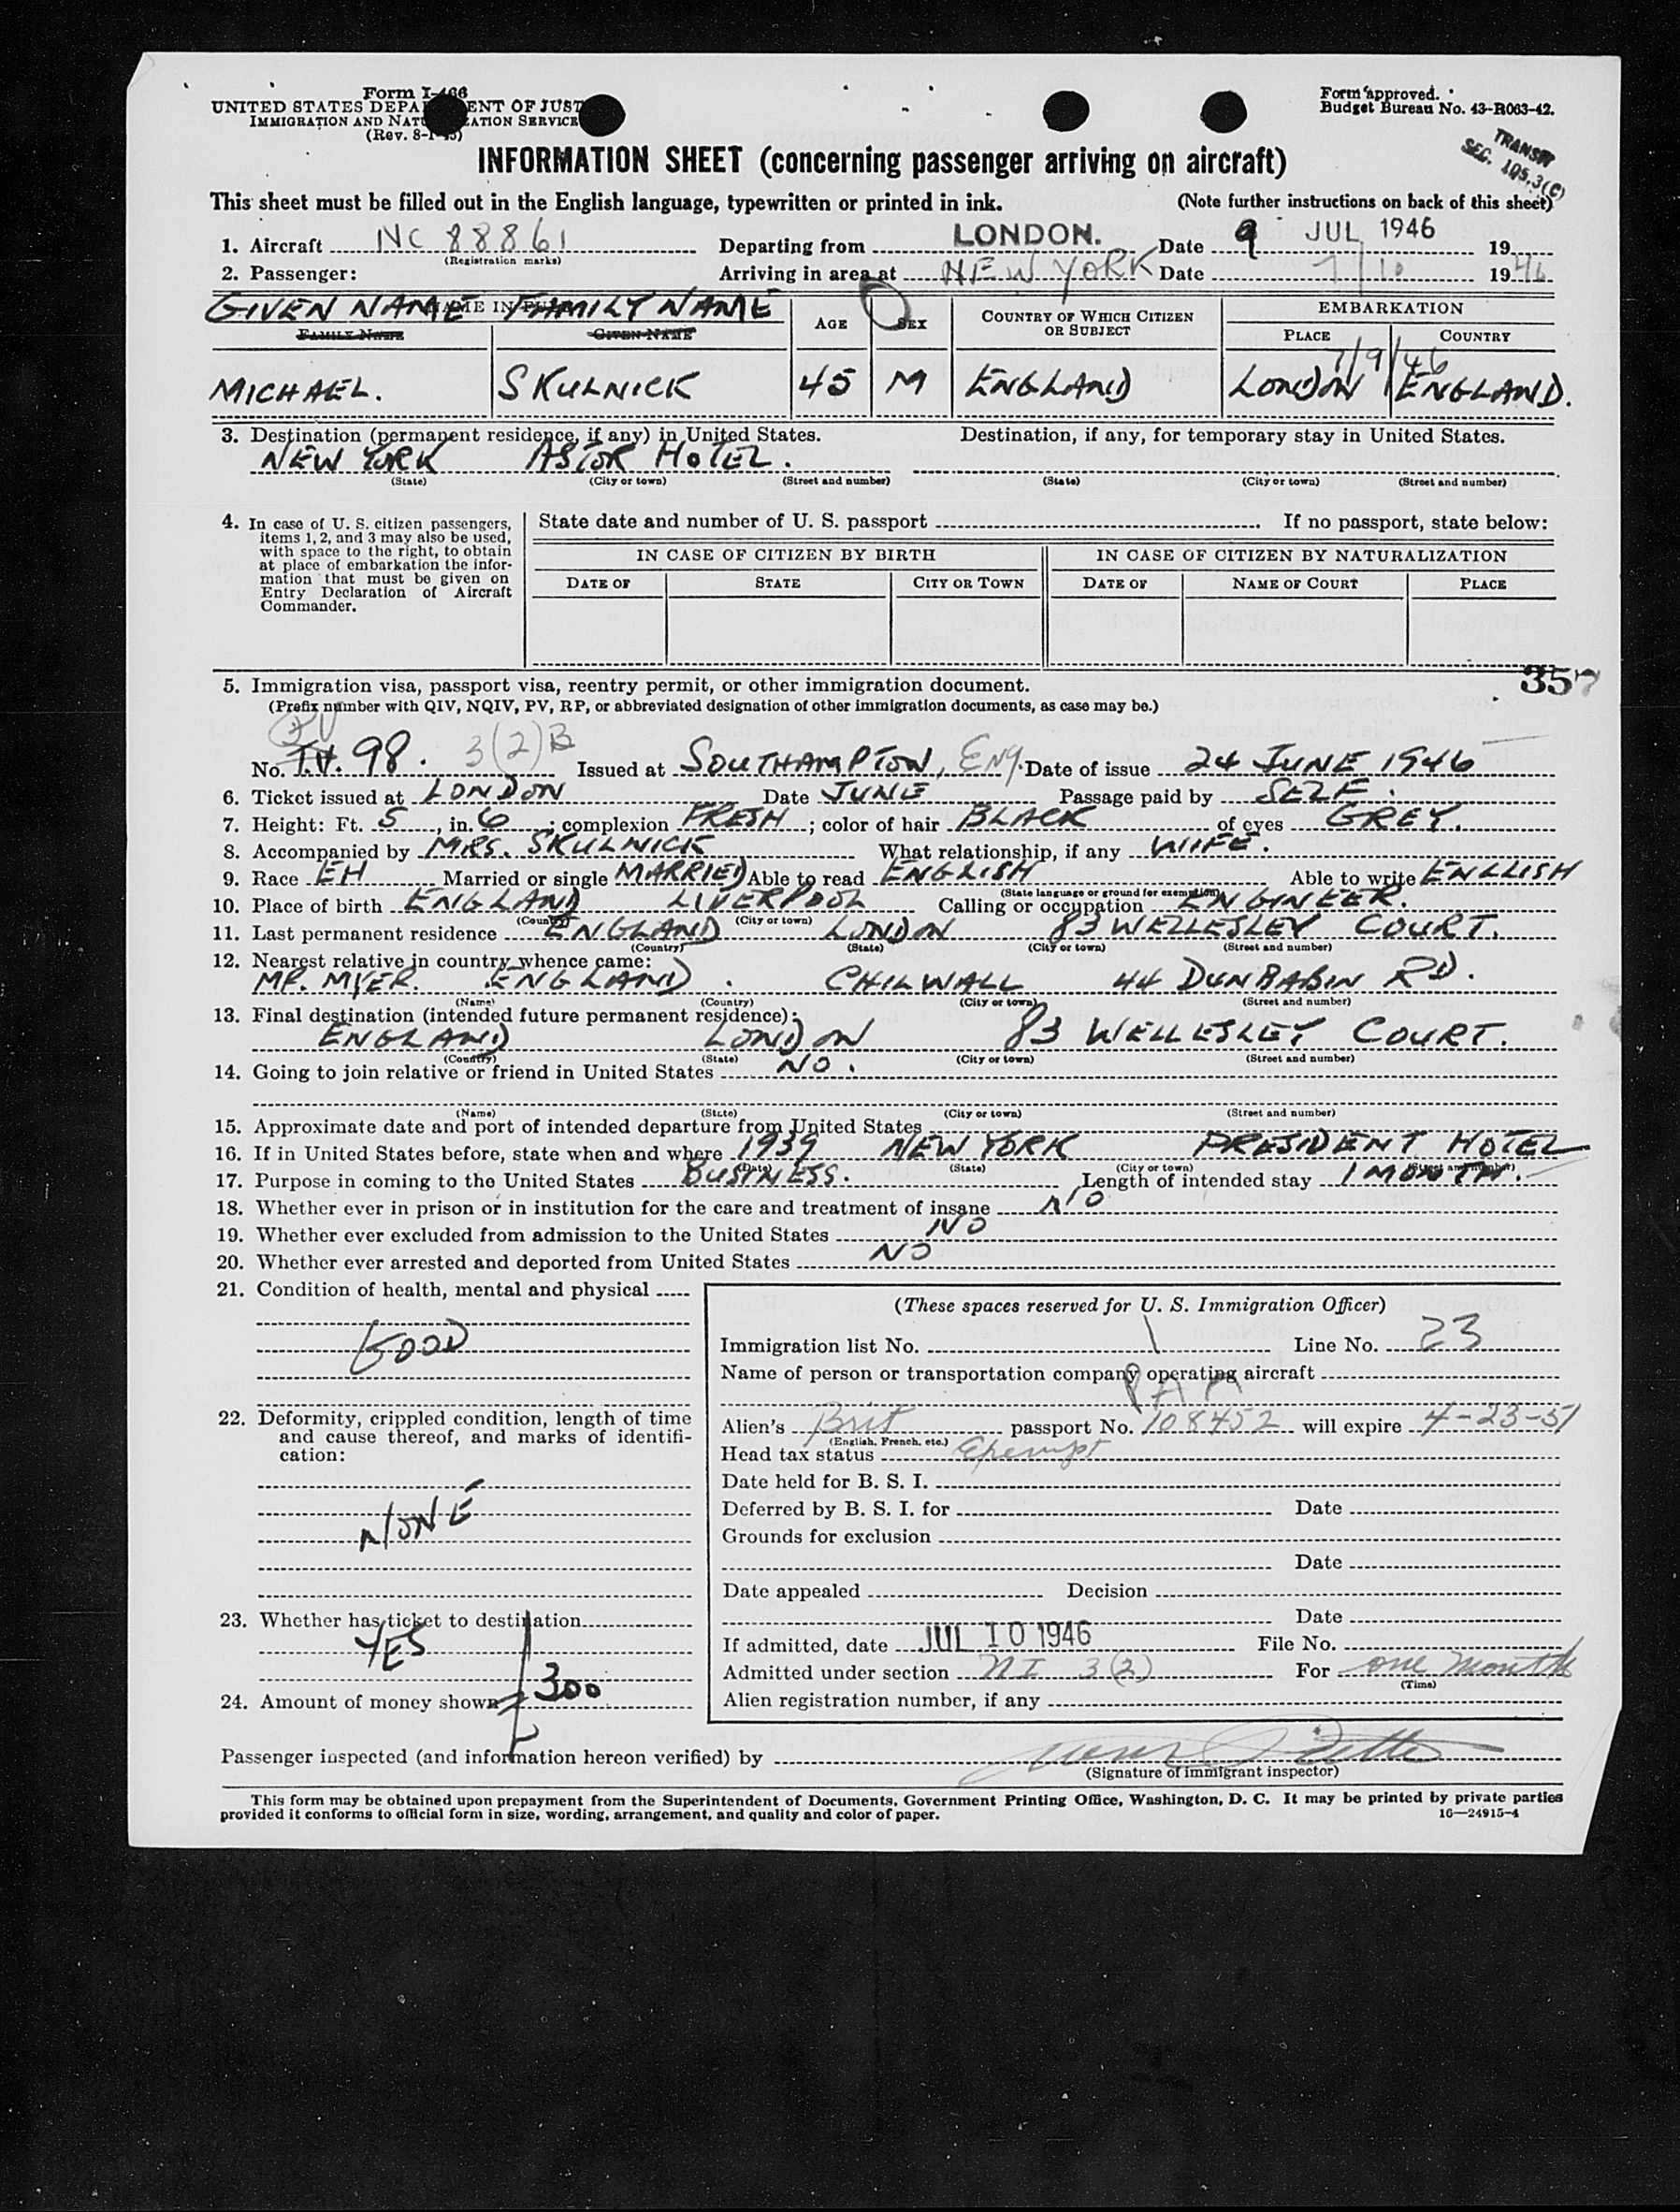 Form I-466
UNITED STATES DEPA ENT OF JUST
IMMIGRATION AND NATU ATION SERVICE
(Rev. 8-1-45)
Form approved.
Budget Bureau No. 43-R063-42.
TRANSIT
SEC. 105.3(C)
INFORMATION SHEET (concerning passenger arriving on aircraft)
This sheet must be filled out in the English language, typewritten or printed in ink. (Note further instructions on back of this sheet)
1. Aircraft NC 88861 Departing from LONDON. Date 9 JUL 1946 19
(Registration marks)
2. Passenger: Arriving in area at NEW YORK Date 7/10 1946
GIVEN NAME FAMILY NAME AGE SEX COUNTRY OF WHICH CITIZEN OR SUBJECT EMBARKATION
FAMILY NAME GIVEN NAME PLACE COUNTRY
7/9/46
MICHAEL. SKULNICK 45 M ENGLAND LONDON ENGLAND.
3. Destination (permanent residence, if any) in United States. Destination, if any, for temporary stay in United States.
NEW YORK ASTOR HOTEL.
(State) (City or town) (Street and number) (State) (City or town) (Street and number)
4. In case of U. S. citizen passengers, items 1, 2, and 3 may also be used, with space to the right, to obtain at place of embarkation the information that must be given on Entry Declaration of Aircraft Commander.
State date and number of U. S. passport If no passport, state below:
IN CASE OF CITIZEN BY BIRTH IN CASE OF CITIZEN BY NATURALIZATION
DATE OF STATE CITY OR TOWN DATE OF NAME OF COURT PLACE
357
5. Immigration visa, passport visa, reentry permit, or other immigration document.
(Prefix number with QIV, NQIV, PV, RP, or abbreviated designation of other immigration documents, as case may be.)
No. T.V. 98. 3(2)B Issued at SOUTHAMPTON, Eng. Date of issue 24 JUNE 1946
6. Ticket issued at LONDON Date JUNE Passage paid by SELF.
7. Height: Ft. 5, in. 6; complexion FRESH; color of hair BLACK of eyes GREY.
8. Accompanied by MRS. SKULNICK What relationship, if any WIFE.
9. Race EH Married or single MARRIED Able to read ENGLISH Able to write ENLLISH
(State language or ground for exemption)
10. Place of birth ENGLAND LIVERPOOL Calling or occupation ENGINEER.
(Country) (City or town)
11. Last permanent residence ENGLAND LONDON 83 WELLESLEY COURT.
(Country) (State) (City or town) (Street and number)
12. Nearest relative in country whence came:
MR. MYER. ENGLAND. CHILWALL 44 DUNBABIN RD.
(Name) (Country) (City or town) (Street and number)
13. Final destination (intended future permanent residence):
ENGLAND LONDON 83 WELLESLEY COURT.
(Country) (State) (City or town) (Street and number)
14. Going to join relative or friend in United States NO.
(Name) (State) (City or town) (Street and number)
15. Approximate date and port of intended departure from United States
16. If in United States before, state when and where 1939 NEW YORK PRESIDENT HOTEL
(Date) (State) (City or town) (Street and number)
17. Purpose in coming to the United States BUSINESS. Length of intended stay 1 MONTH.
18. Whether ever in prison or in institution for the care and treatment of insane NO
19. Whether ever excluded from admission to the United States NO
20. Whether ever arrested and deported from United States NO
21. Condition of health, mental and physical
GOOD
22. Deformity, crippled condition, length of time and cause thereof, and marks of identification:
NONE
23. Whether has ticket to destination
YES
24. Amount of money shown £300
(These spaces reserved for U. S. Immigration Officer)
Immigration list No. 1 Line No. 23
Name of person or transportation company operating aircraft
PAA
Alien's Brit passport No. 108452 will expire 4-23-51
(English, French, etc.)
Head tax status Exempt
Date held for B. S. I.
Deferred by B. S. I. for Date
Grounds for exclusion
Date
Date appealed Decision
Date
If admitted, date JUL 10 1946 File No.
Admitted under section NI 3(2) For one month
(Time)
Alien registration number, if any
Passenger inspected (and information hereon verified) by
(Signature of immigrant inspector)
This form may be obtained upon prepayment from the Superintendent of Documents, Government Printing Office, Washington, D. C. It may be printed by private parties
provided it conforms to official form in size, wording, arrangement, and quality and color of paper. 16—24915-4